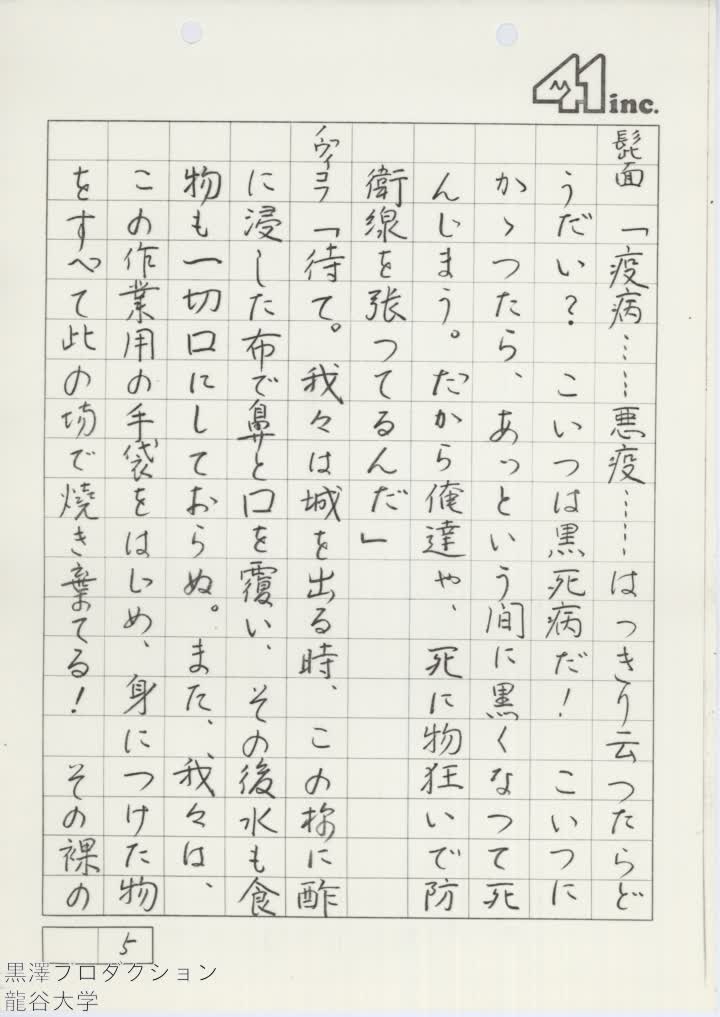 41 inc.
髭面「疫病……悪疫……はっきり云つたらど
うだい？　こいつは黒死病だ！　こいつに
かゝつたら、あっという間に黒くなつて死
んじまう。だから俺達や、死に物狂いで防
衛線を張つてるんだ」
ヴィコラ「待て。我々は城を出る時、この様に酢
に浸した布で鼻と口を覆い、その後水も食
物も一切口にしておらぬ。また、我々は、
この作業用の手袋をはじめ、身につけた物
をすべて此の場で焼き棄てる！　その裸の
5
黒澤プロダクション
龍谷大学